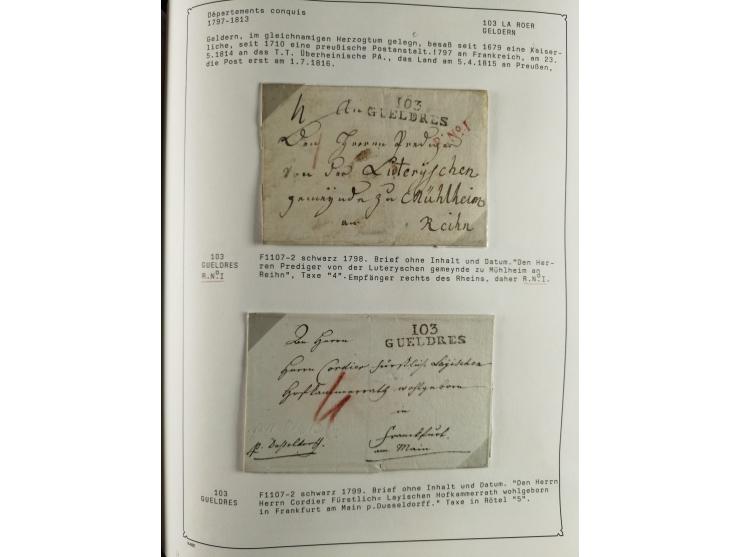 Départements conquis
1797-1813
103 LA ROER
GELDERN
Geldern, im gleichnamigen Herzogtum gelegn, besaß seit 1679 eine Kaiser-
liche, seit 1710 eine preußische Postanstalt.!797 an Frankreich, am 23.
5.1814 an das T.T. Überheinische PA., das Land am 5.4.1815 an Preußen,
die Post erst am 1.7.1816.
4 An 103
GUELDRES
R.No.I
Den Herren Prediger
von der Luteryschen
gemeynde zu Mühlheim
am Reihn
103
GUELDRES
R.No.I
F1107-2 schwarz 1798. Brief ohne Inhalt und Datum."Den Her-
ren Prediger von der Luteryschen gemeynde zu Mühlheim an
Reihn", Taxe "4".Empfänger rechts des Rheins, daher R.No.I.
103
GUELDRES
An Herrn
Herrn Cordier fürstlich Layischen
Hofkammerrath wohlgeboren
in
Franckfurt
am Main
p. Dusseldorff.
103
GUELDRES
F1107-2 schwarz 1799. Brief ohne Inhalt und Datum. "Den Herrn
Herrn Cordier Fürstlich= Layischen Hofkammerrath wohlgeborn
in Frankfurt am Main p.Dusseldorff." Taxe in Rötel "5".